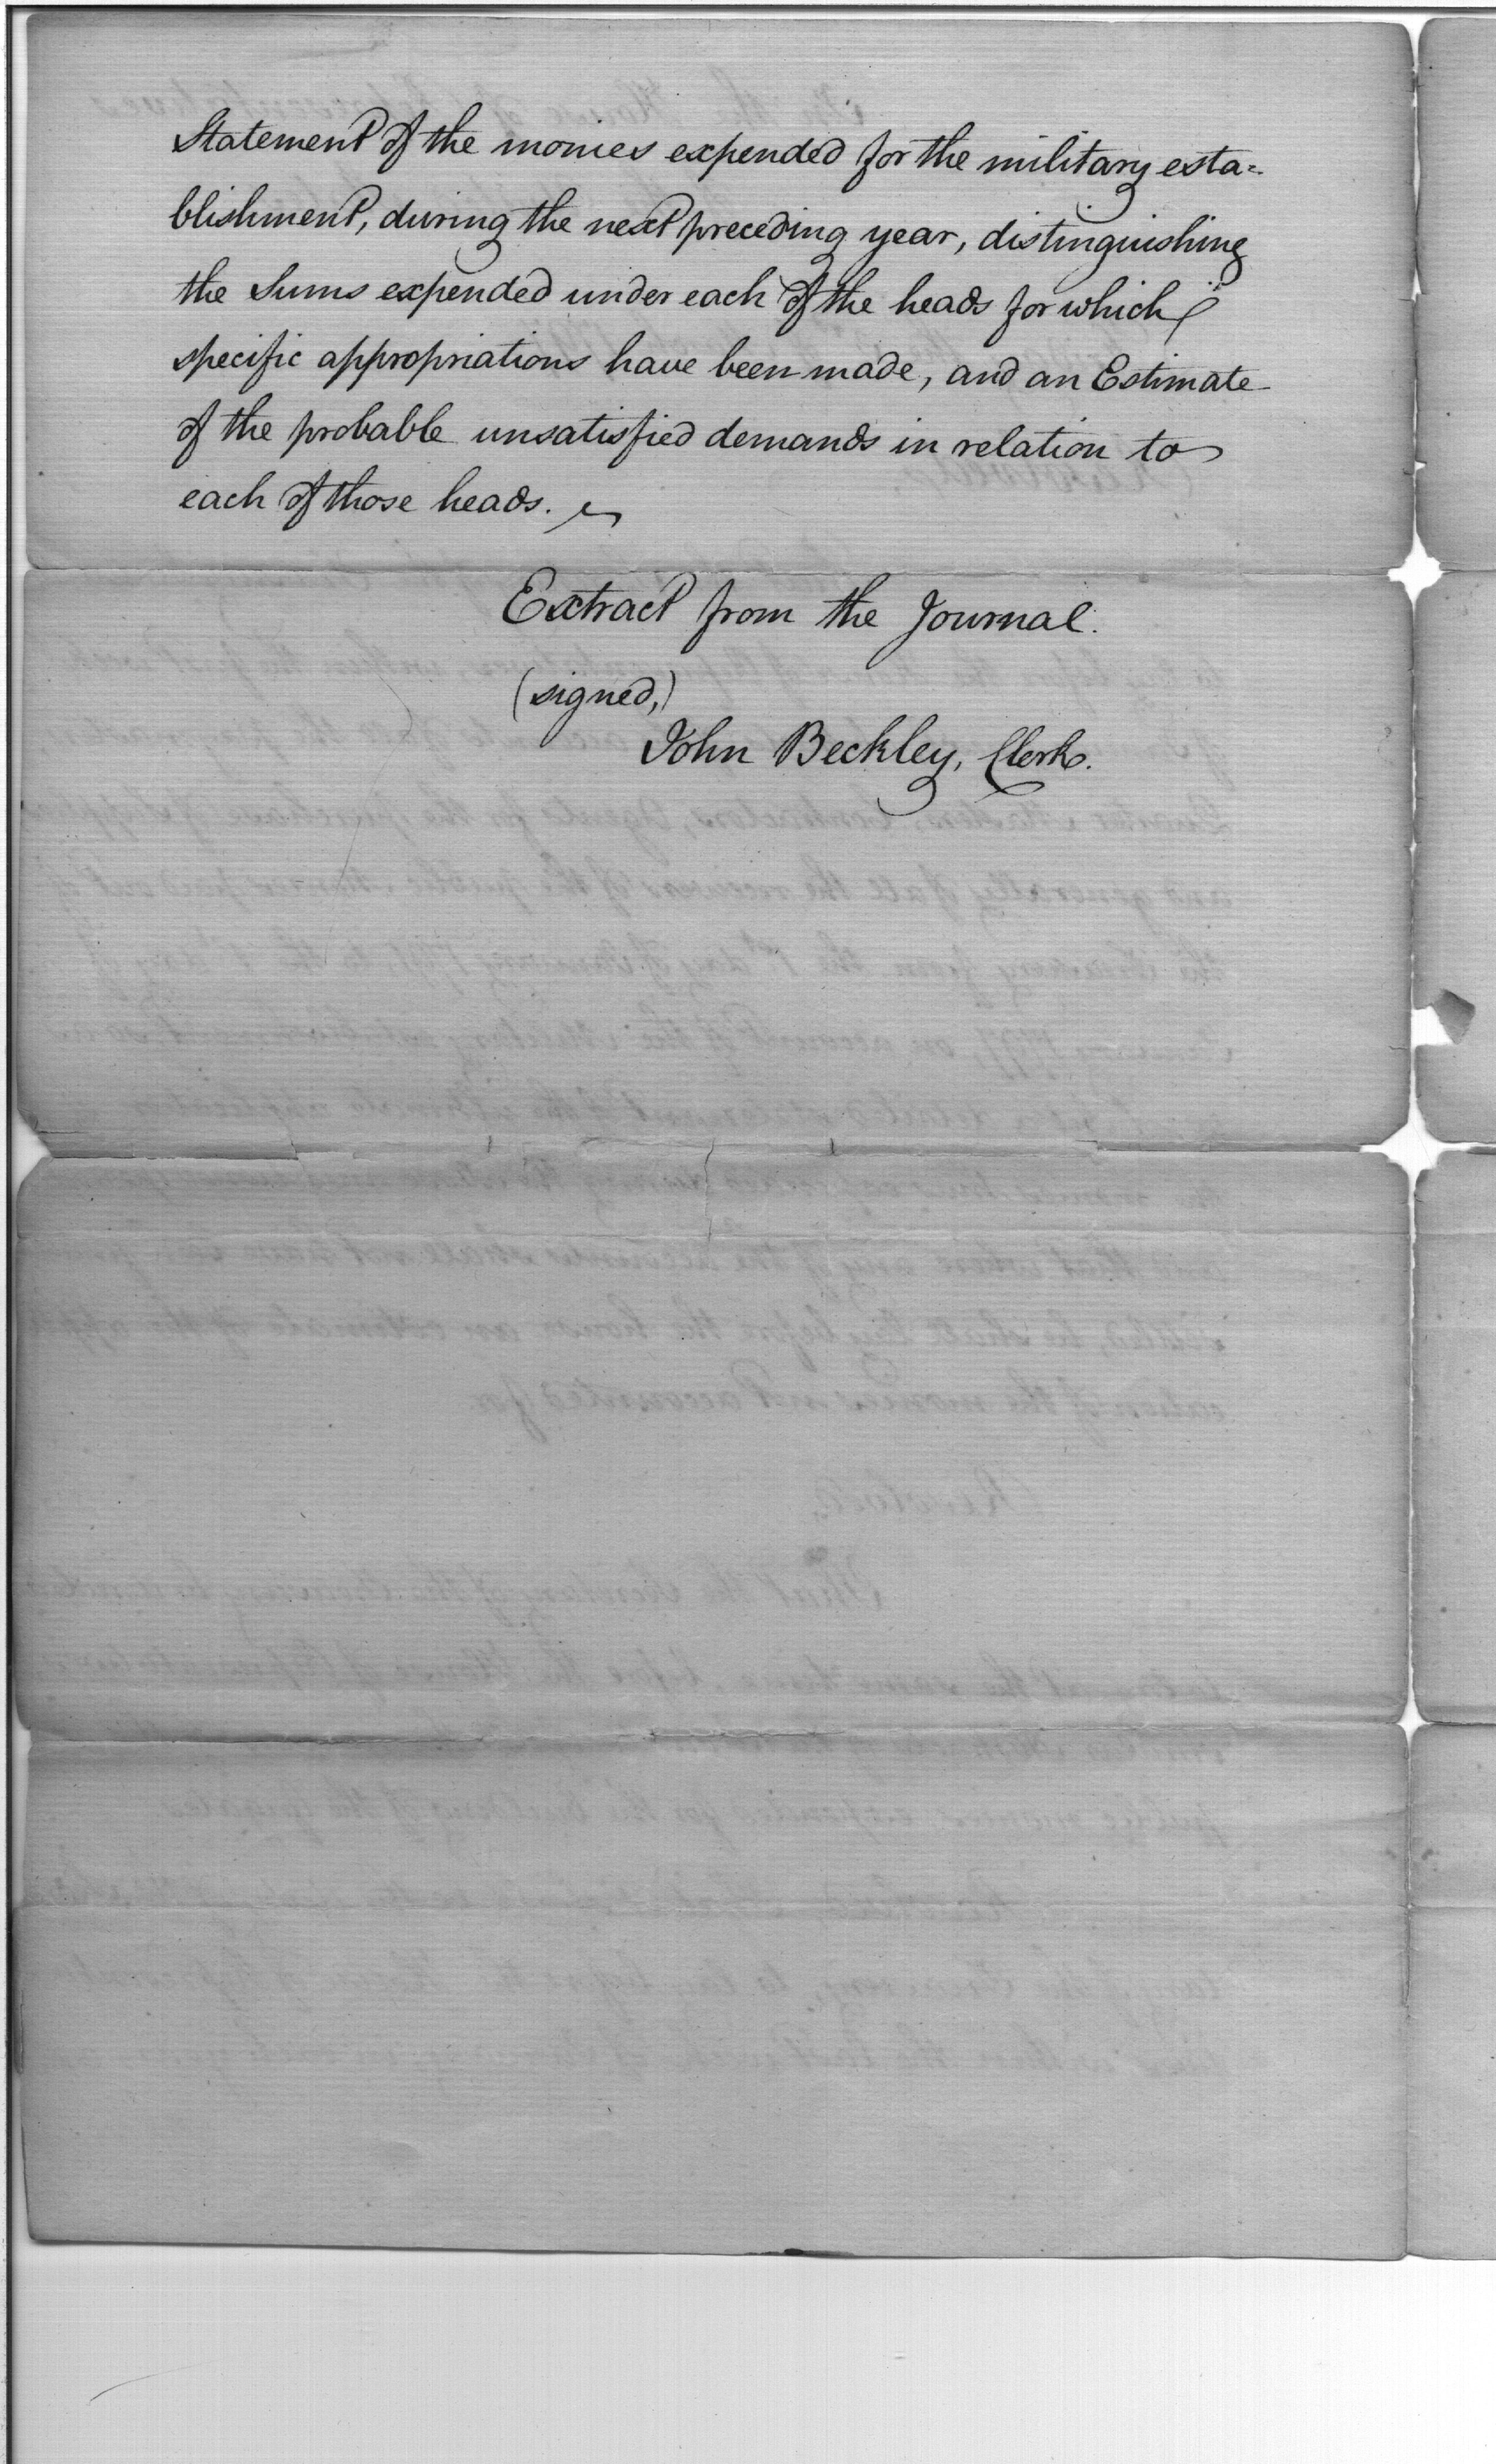 Statement of the monies expended for the military esta=
blishment, during the next preceding year, distinguishing
the Sums expended under each of the heads for which
specific appropriations have been made, and an Estimate
of the probable unsatisfied demands in relation to
each of those heads.
Extract from the Journal.
(signed,)
John Beckley, Clerk.